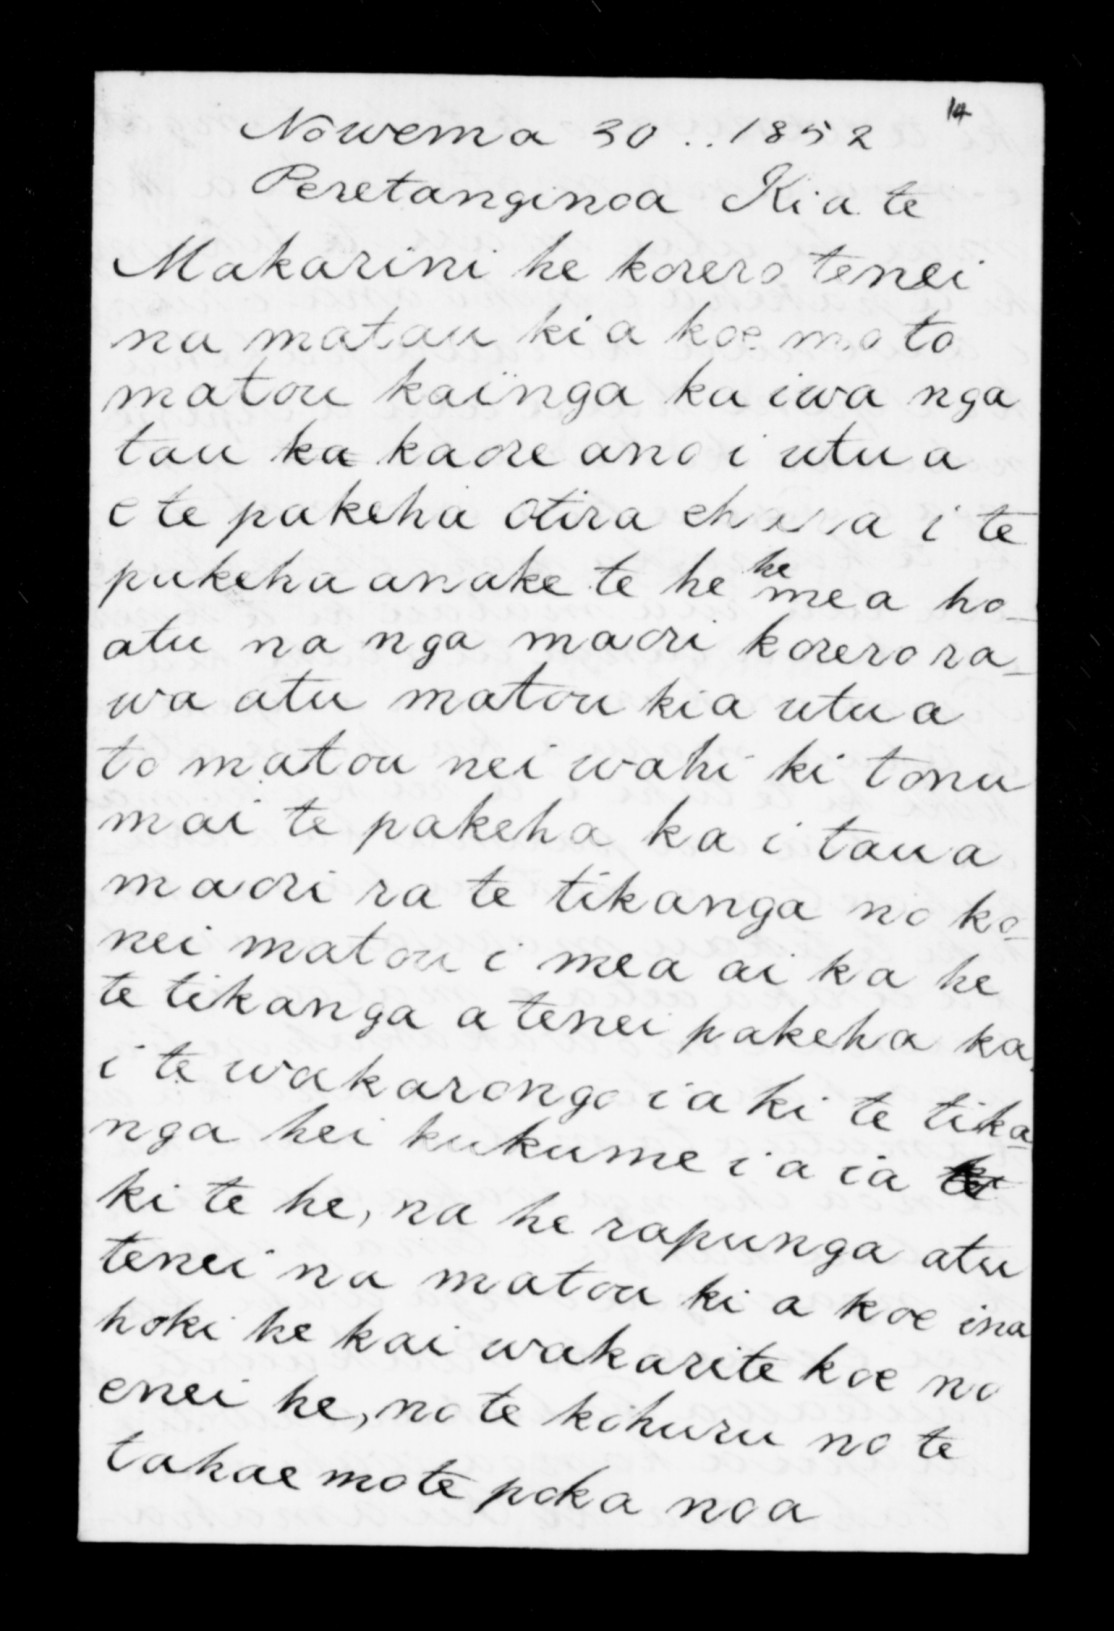 14
Nowema 30 .. 1852
Peretanginoa Kia te
Makarini he korero tenei
na matau kia koe mo to
matou kainga ka iwa nga
tau ka kaore ano i utua
e te pakeha otira ehara i te
pakeha anake te he he mea ho-
atu na nga maori korero ra-
wa atu matou kia utua
to matou nei wahi ki tonu
mai te pakeha ka i taua
maori ra te tikanga no ko-
nei matou i mea ai ka he
te tikanga a tenei pakeha ka
i te wakarongo ia ki te tika-
nga hei kukume i a ia
ki te he, na he rapunga atu
tenei na matou ki a koe ina
hoki he kai wakarite koe no
enei he, no te kohuru no te
tahae mo te poka noa